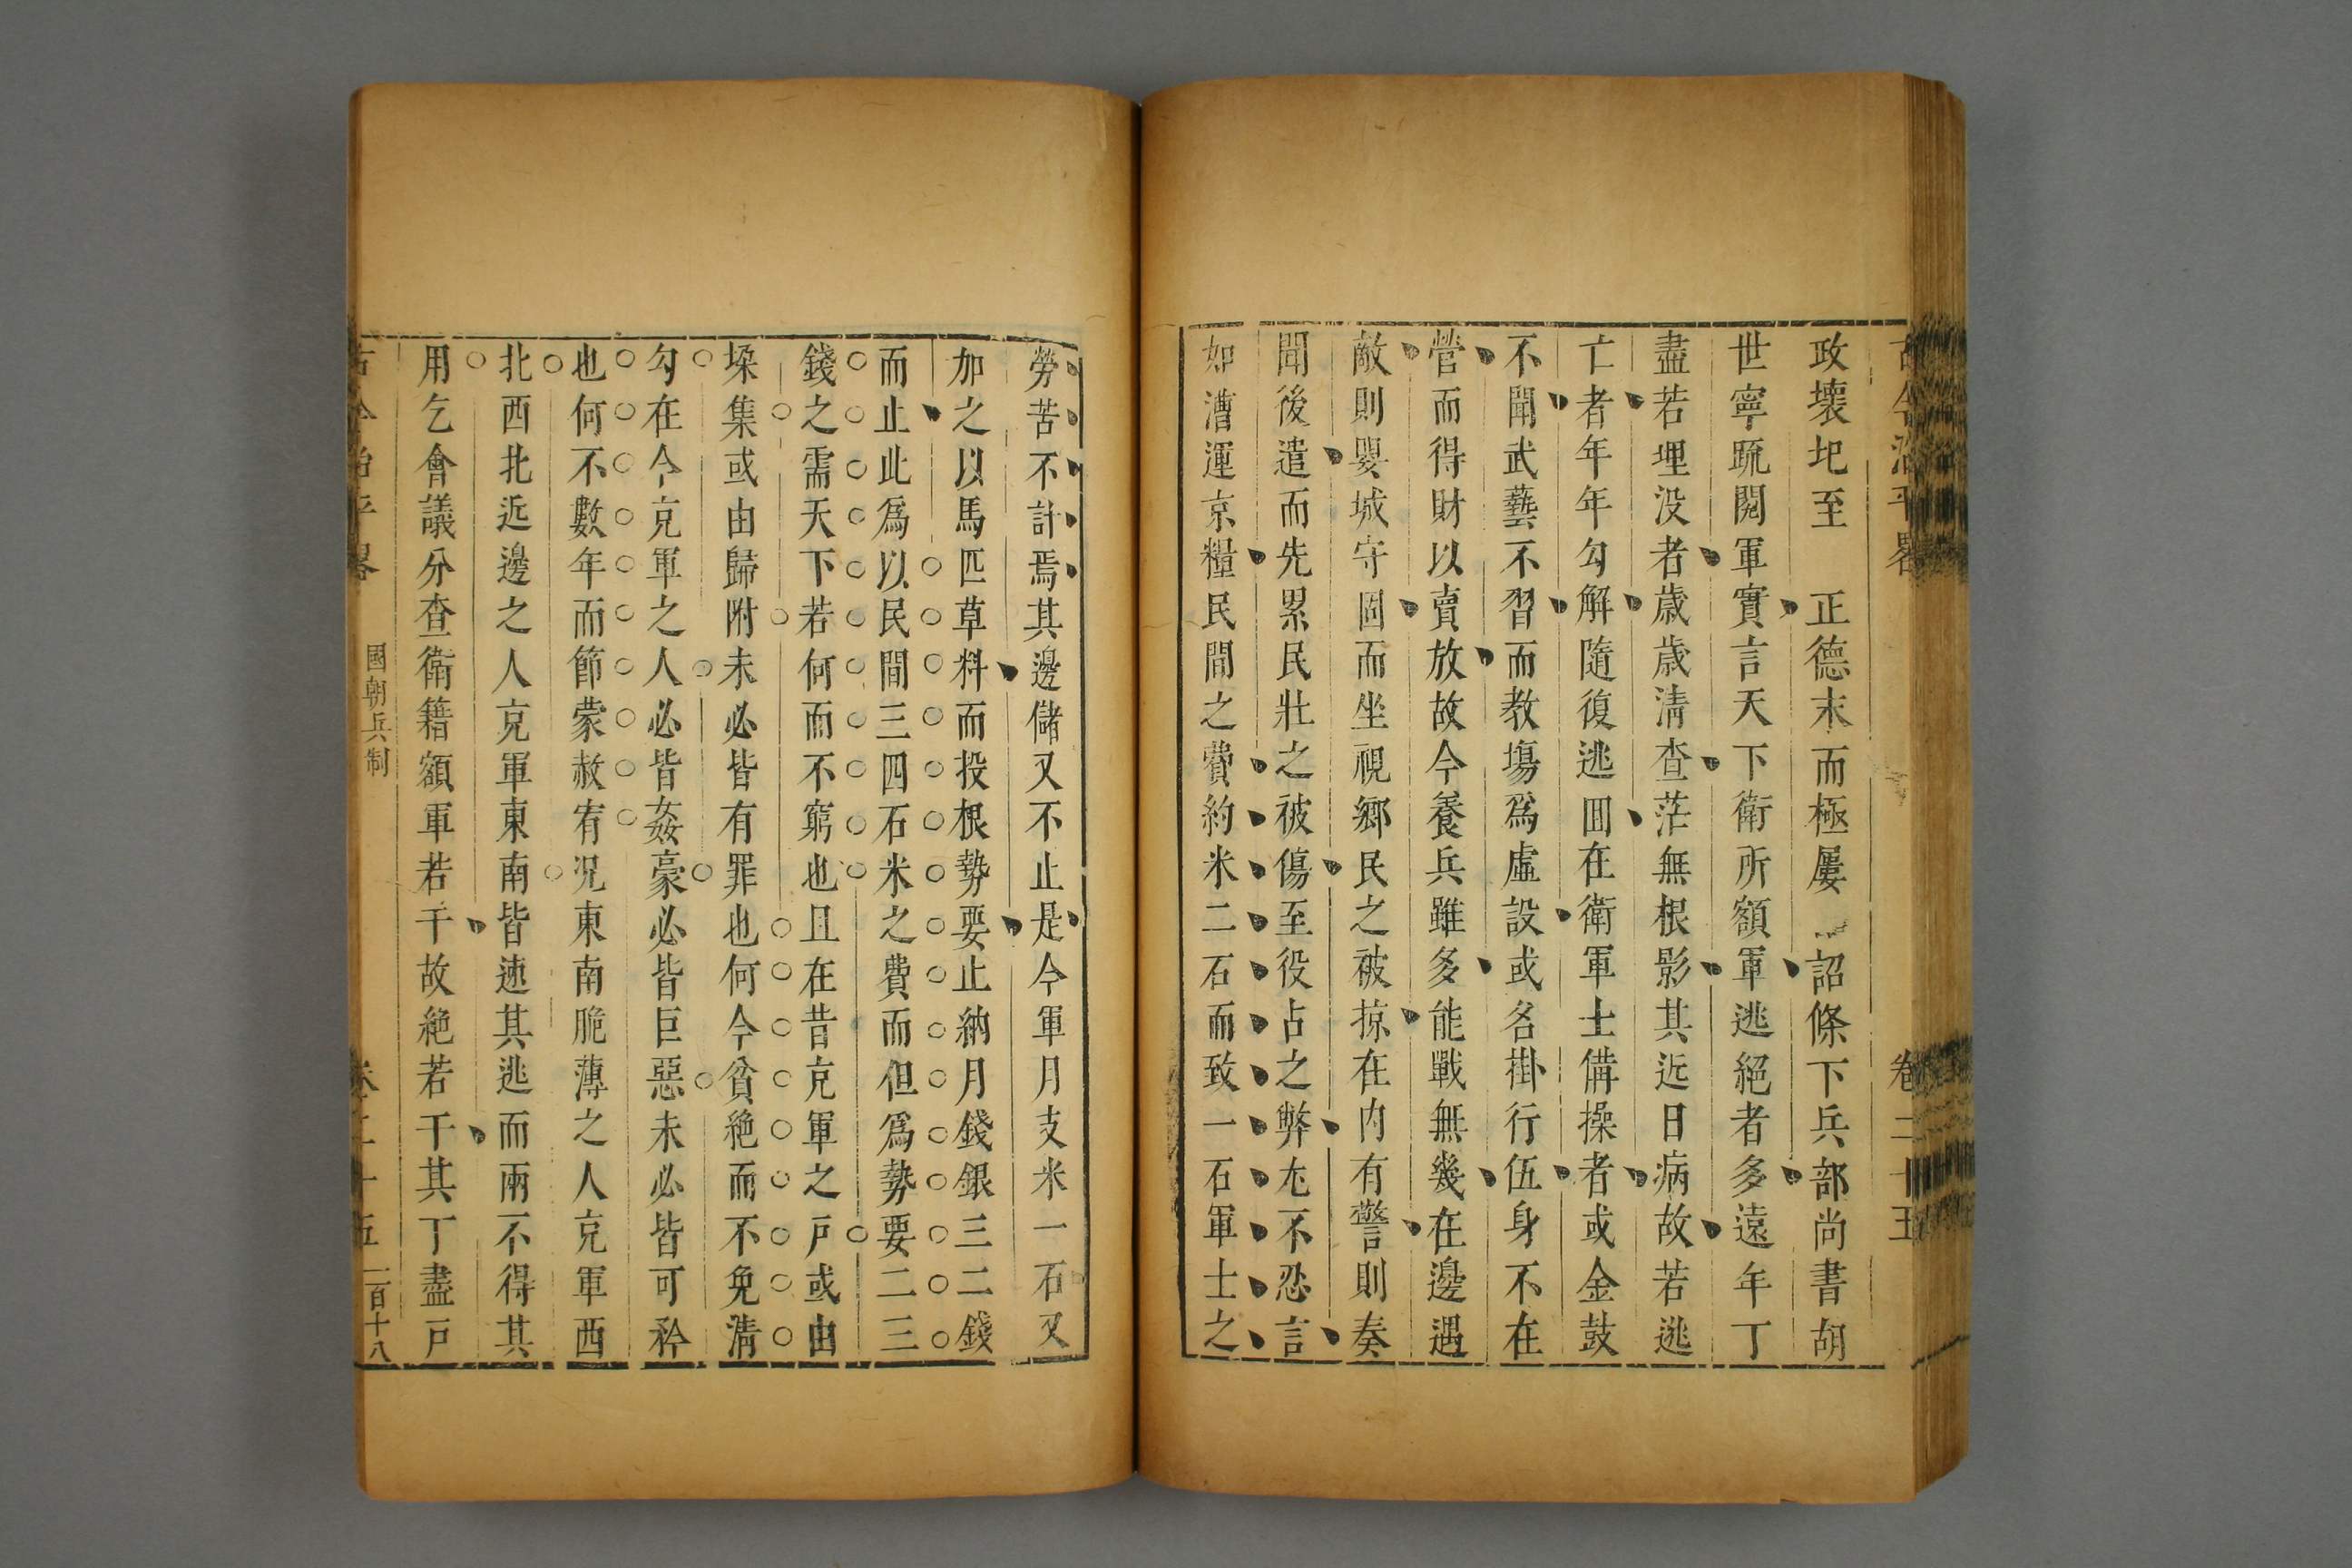 古今治平畧 卷二十五
政壞圯至 正德末而極屢 詔條下兵部尚書胡
世寧疏閱軍實言天下衛所額軍逃絕者多遠年丁
盡若埋没者歲歲清查茫無根影其近日病故若逃
亡者年年勾解隨復逃囬在衛軍士備操者或金鼓
不聞武藝不習而教塲爲虛設或名掛行伍身不在
營而得財以賣放故今養兵雖多能戰無幾在邊遇
敵則嬰城守固而坐視鄉民之被掠在内有警則奏
聞後遣而先累民壯之被傷至役占之弊尤不忍言
如漕運京糧民間之費約米二石而致一石軍士之
勞苦不計焉其邊儲又不止是今軍月支米一石又
加之以馬匹草料而投根勢要止納月錢銀三二錢
而止此爲以民間三四石米之費而但爲勢要二三
錢之需天下若何而不窮也且在昔克軍之戶或由
垜集或由歸附未必皆有罪也何今貧絶而不免清
勾在今克軍之人必皆姦豪必皆巨惡未必皆可矜
也何不數年而節蒙赦宥况東南脆薄之人克軍西
北西北近邊之人克軍東南皆速其逃而兩不得其
用乞會議分查衛籍額軍若干故絕若干其丁盡戶
古今治平畧 國朝兵制 卷二十五 二百十八